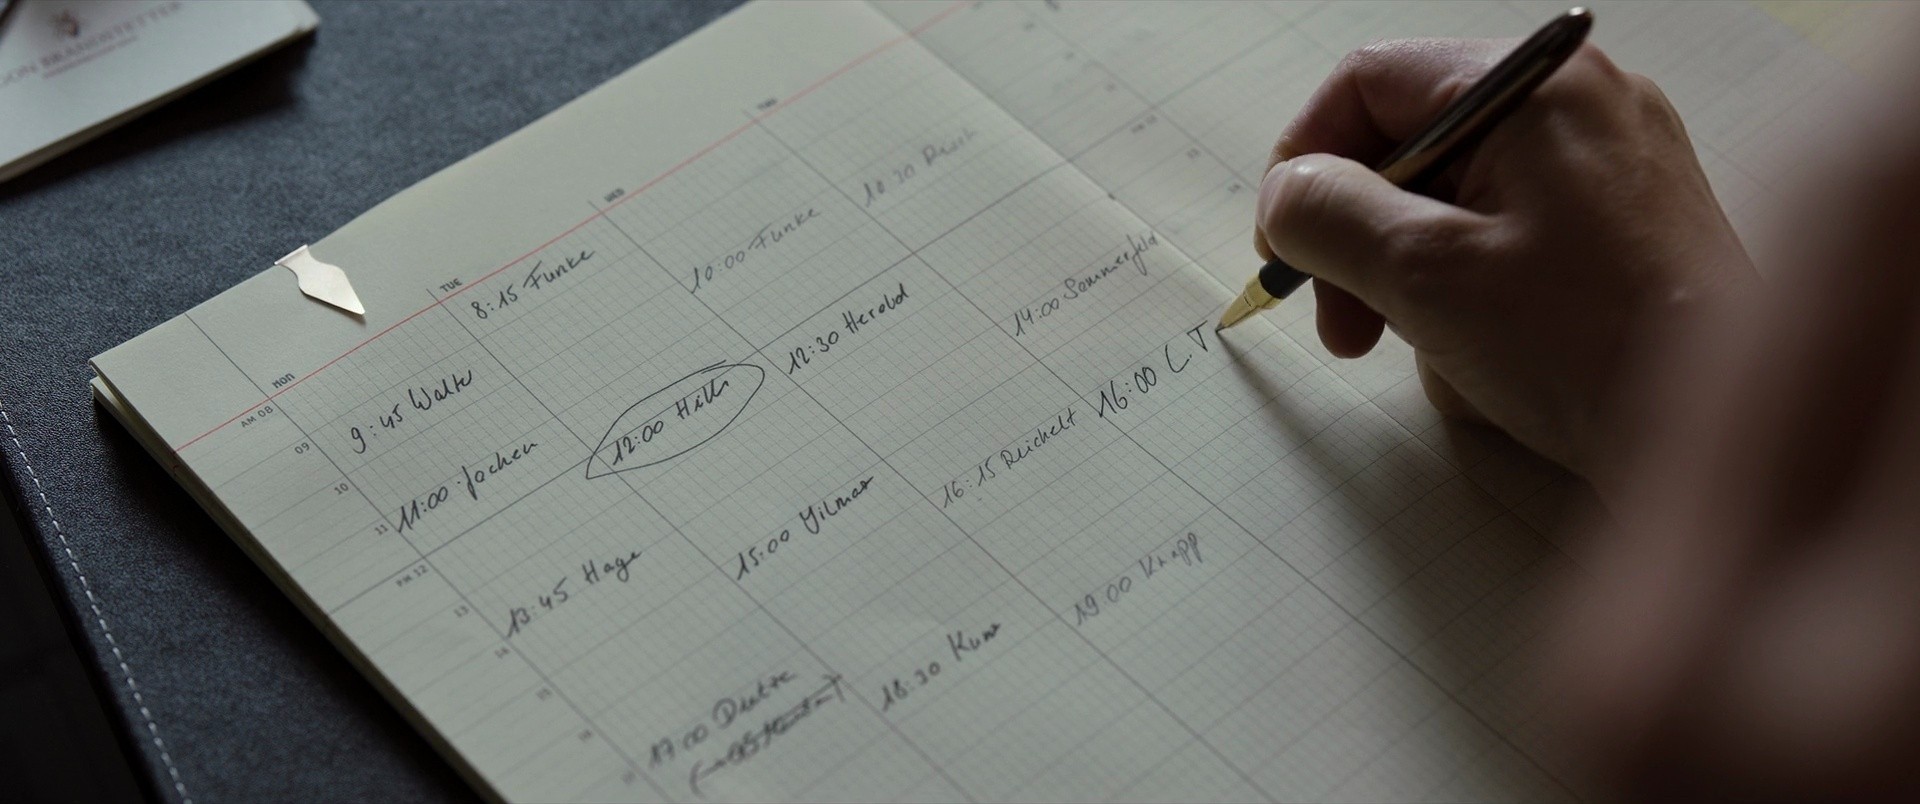 MON
TUE
WED
THU
AM 08
09
10
11
PM 12
13
14
15
16
17
9:45 Walter
11:00 Jochen
13:45 Hage
17:00
8:15 Funke
12:00
15:00 Yilmaz
18:30 Kunz
10:00 Funke
12:30 Herold
16:15 Reichelt
19:00 Knapp
10:30
14:00 Sommerfeld
16:00 C. T
PM 12
13
14